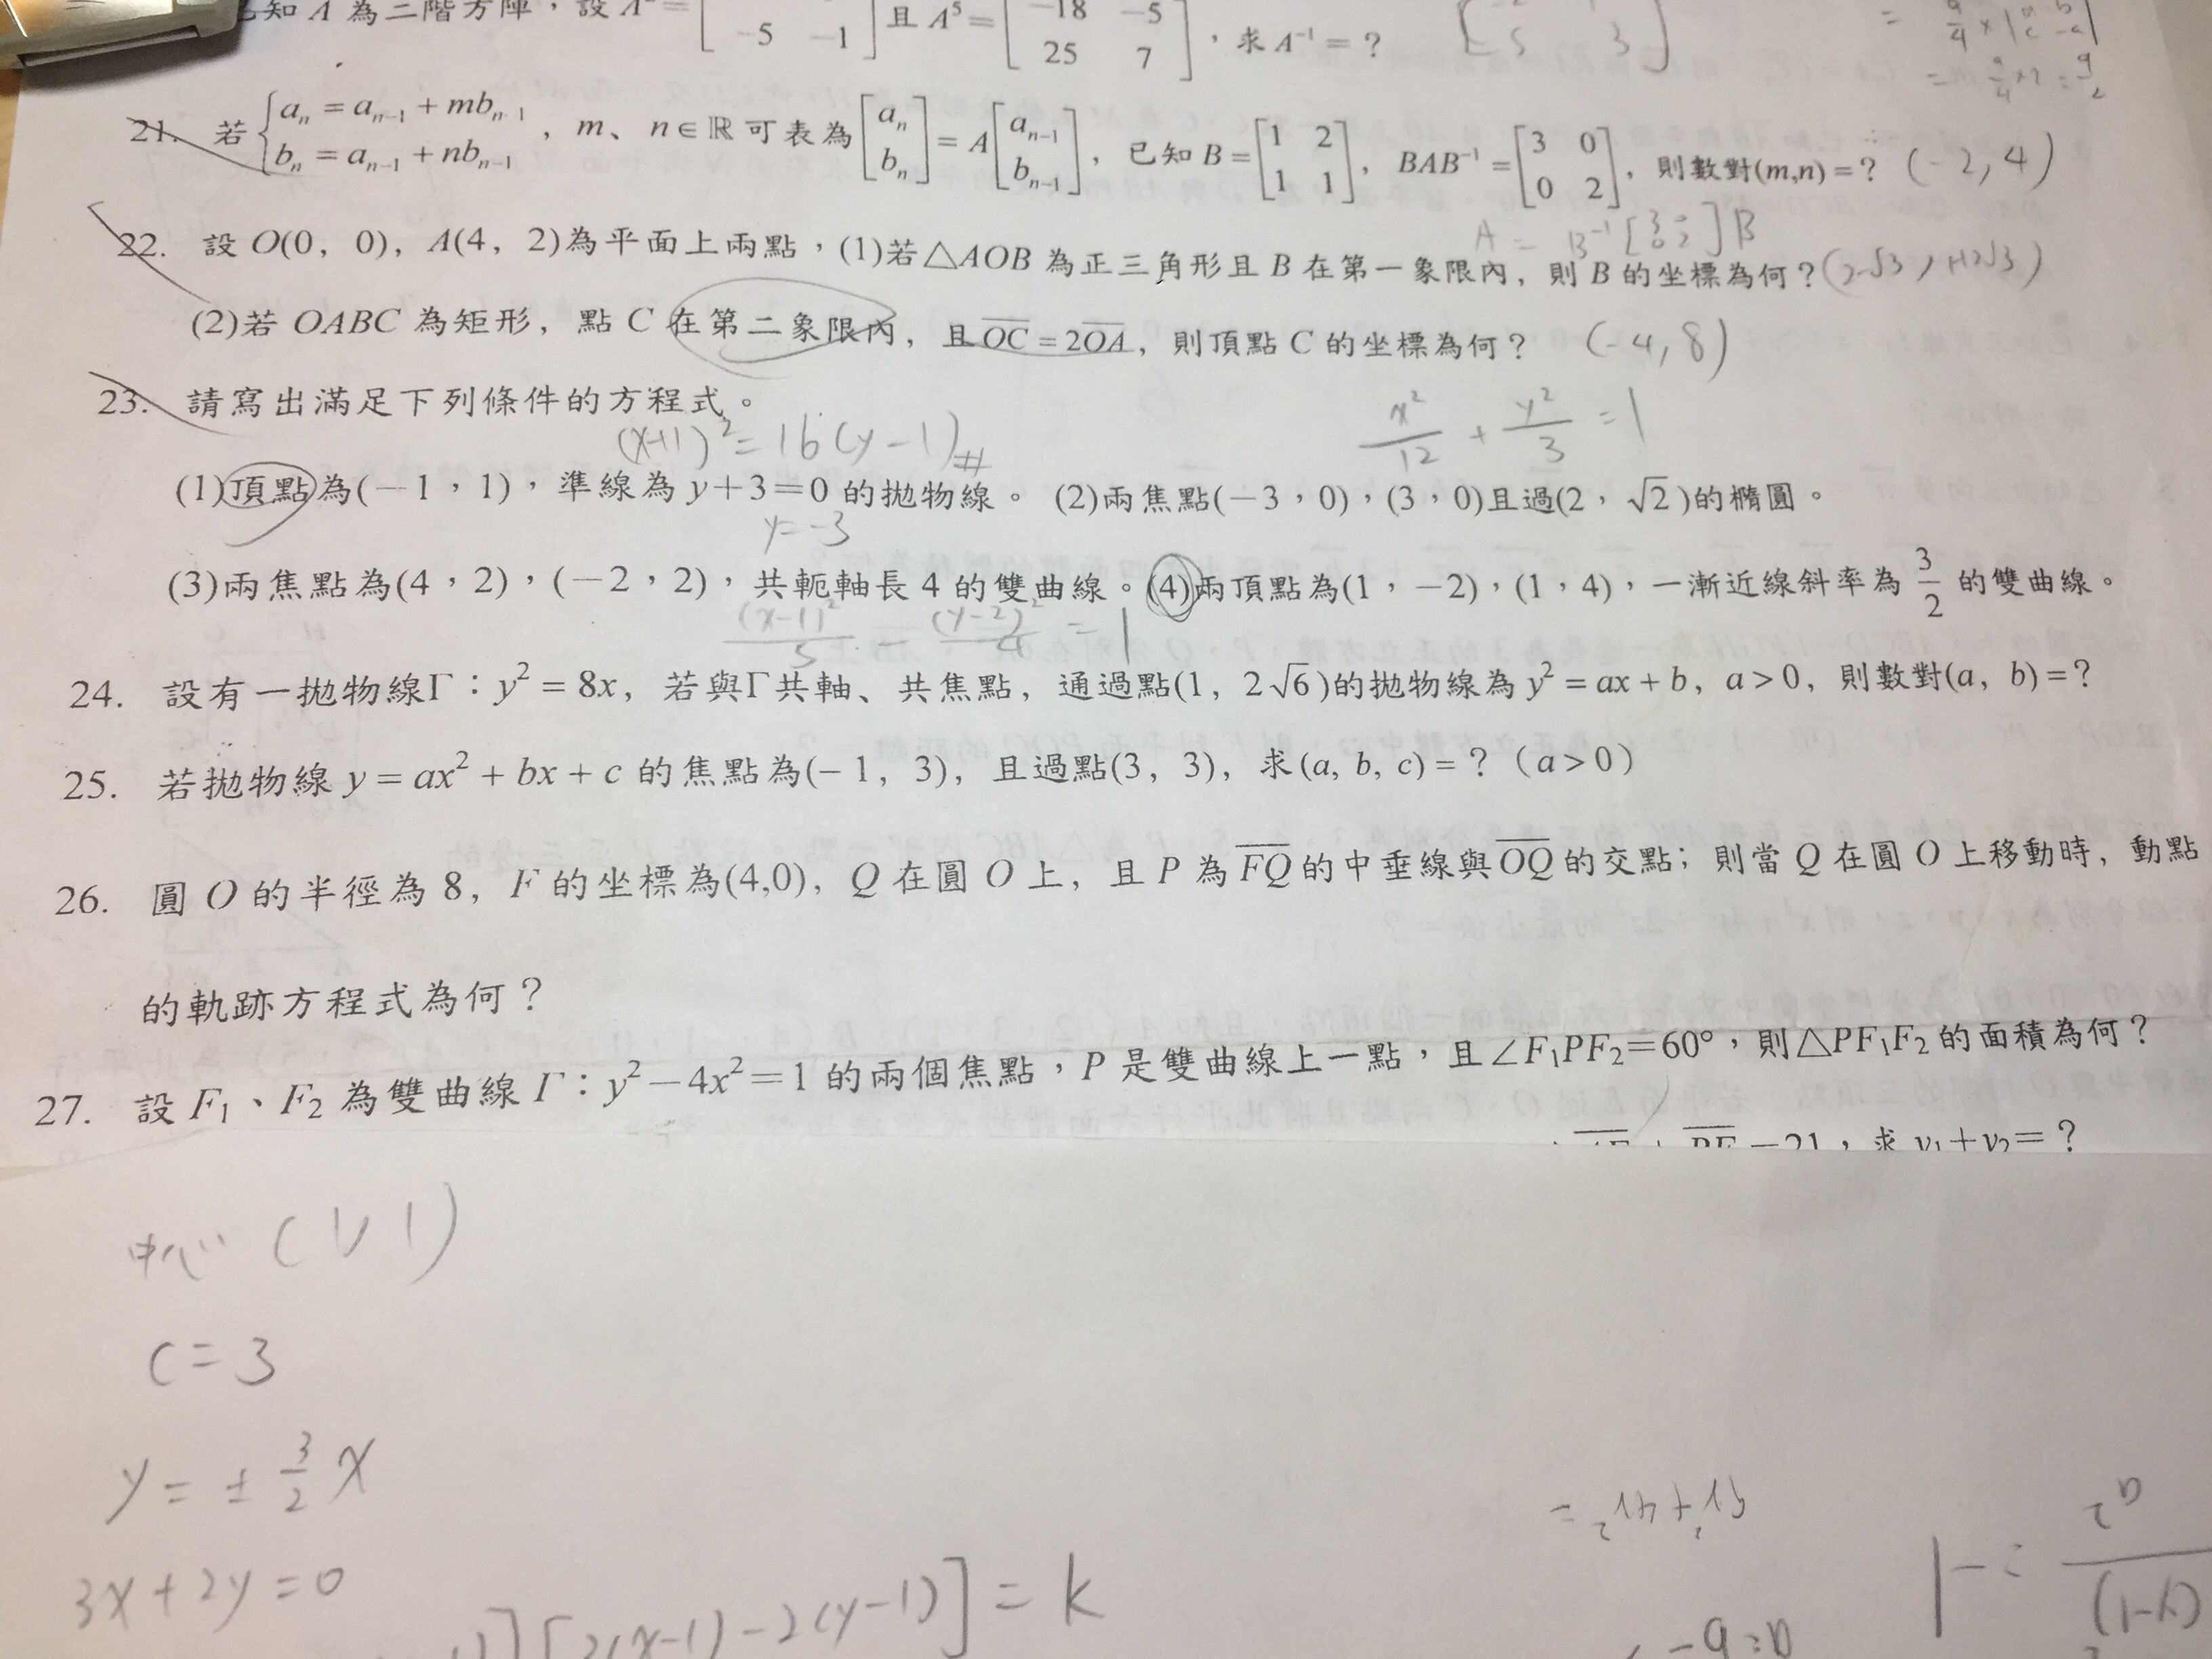 知 A 為二階方陣，設 A = [ -5 -1 ] 且 A⁵ = [ -18 -5 25 7 ]，求 A⁻¹ = ？ [ -5 3 ]
21. 若 { aₙ = aₙ₋₁ + mbₙ₋₁ bₙ = aₙ₋₁ + nbₙ₋₁ ，m、n∈ℝ 可表為 [ aₙ bₙ ] = A [ aₙ₋₁ bₙ₋₁ ]，已知 B = [ 1 2 1 1 ]，BAB⁻¹ = [ 3 0 0 2 ]，則數對(m,n) = ？ (-2,4)
A = B⁻¹ [ 3 0 0 2 ] B
22. 設 O(0，0)，A(4，2)為平面上兩點，(1)若△AOB 為正三角形且 B 在第一象限內，則 B 的坐標為何？(2-√3, 1+2√3)
(2)若 OABC 為矩形，點 C 在第二象限內，且 OC = 2OA，則頂點 C 的坐標為何？ (-4,8)
23. 請寫出滿足下列條件的方程式。
(x+1)² = 16(y-1)# x²/12 + y²/3 = 1
(1)頂點為(－1，1)，準線為 y＋3＝0 的拋物線。 (2)兩焦點(－3，0)，(3，0)且過(2，√2)的橢圓。
y=-3
(3)兩焦點為(4，2)，(－2，2)，共軛軸長 4 的雙曲線。(4)兩頂點為(1，－2)，(1，4)，一漸近線斜率為 3/2 的雙曲線。
(x-1)²/5 - (y-2)²/4 = 1
24. 設有一拋物線Γ：y² = 8x，若與Γ共軸、共焦點，通過點(1，2√6)的拋物線為 y² = ax + b，a > 0，則數對(a，b) = ？
25. 若拋物線 y = ax² + bx + c 的焦點為(－1，3)，且過點(3，3)，求(a, b, c) = ？（a > 0）
26. 圓 O 的半徑為 8，F 的坐標為(4,0)，Q 在圓 O 上，且 P 為 FQ 的中垂線與 OQ 的交點；則當 Q 在圓 O 上移動時，動點
的軌跡方程式為何？
27. 設 F₁、F₂ 為雙曲線 Γ：y²－4x²＝1 的兩個焦點，P 是雙曲線上一點，且∠F₁PF₂＝60°，則△PF₁F₂ 的面積為何？
＝21，求 y₁＋y₂＝？
中心 (1, 1)
c = 3
y = ± 3/2 x
3x + 2y = 0
(x-1)-2(y-1)] = k